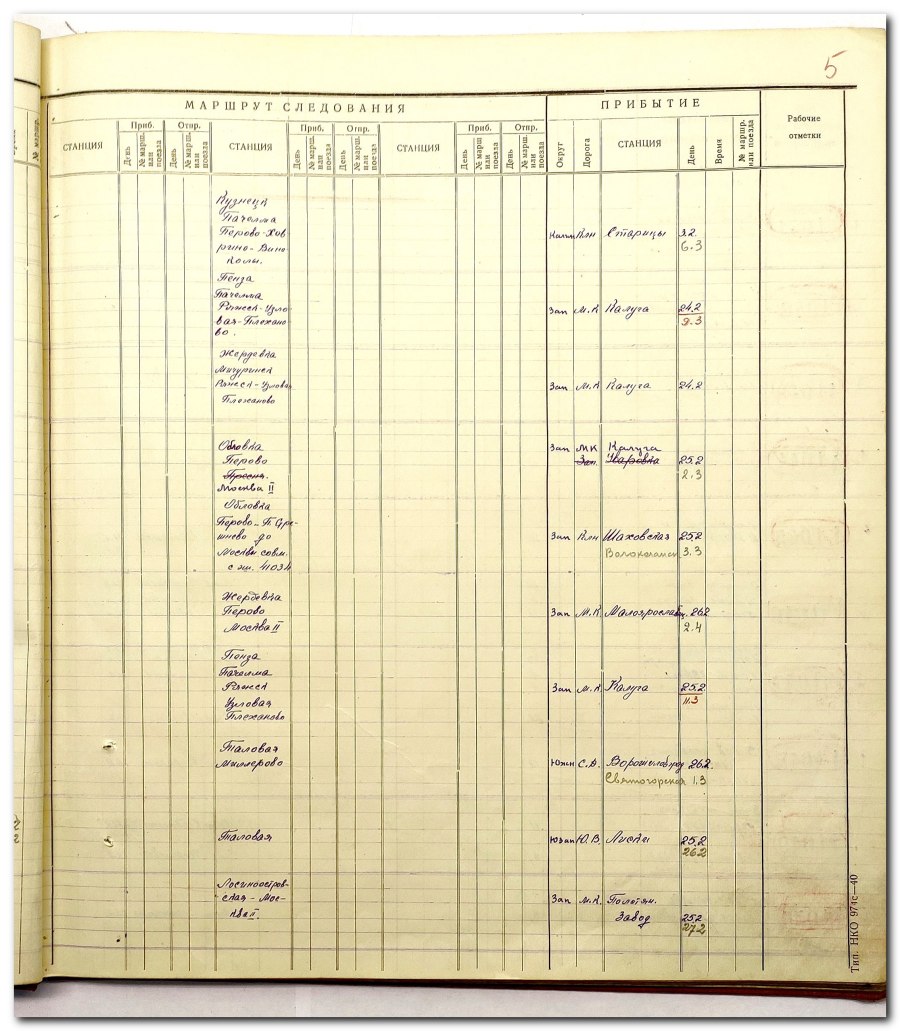 5
МАРШРУТ СЛЕДОВАНИЯ
ПРИБЫТИЕ
Рабочие
отметки
№ маршр.
СТАНЦИЯ
Приб.
Отпр.
День
№ марш. или поезда
День
№ марш. или поезда
СТАНЦИЯ
Приб.
Отпр.
День
№ марш. или поезда
День
№ марш. или поезда
СТАНЦИЯ
Приб.
Отпр.
День
№ марш. или поезда
День
№ марш. или поезда
Округ
Дорога
СТАНЦИЯ
День
Время
№ маршр. или поезда
Кузнецк
Пачелма
Перово-Хов
рино-Вино
колы.
Калин Клн Старицы 3.2
6.3
Пенза
Пачелма
Ряжск-Узло
вая-Плехано
во.
Зап М.К Калуга 24.2
9.3
Жердевка
Мичуринск
Ряжск-Узловая
Плеханово
Зап М.К Калуга 24.2
Обловка
Перово
Пресня.
Москва II
Зап МК Калуга
Зап. 25.2
2.3
Обловка
Перово-П. Стре-
шнево до
Москвы совм.
с эш. 41034
Зап Клн Шаховская 25.2
Волоколамск 3.3
Жердевка
Перово
Москва II
Зап М.К. Малоярославец. 26.2
2.4
Пенза
Пачелма
Ряжск
Узловая
Плеханово
Зап М.К. Калуга 25.2
11.3
Таловая
Миллерово
Южн С.Д. Ворошиловград 26.2
Святогорская 1.3
Таловая
Юзап Ю.В. Лиски 25.2
26.2
Лосиноостров-
ская - Мос-
ква II
Зап М.К. Полотян.
Завод 25.2
27.2
Тип. НКО 974с—40